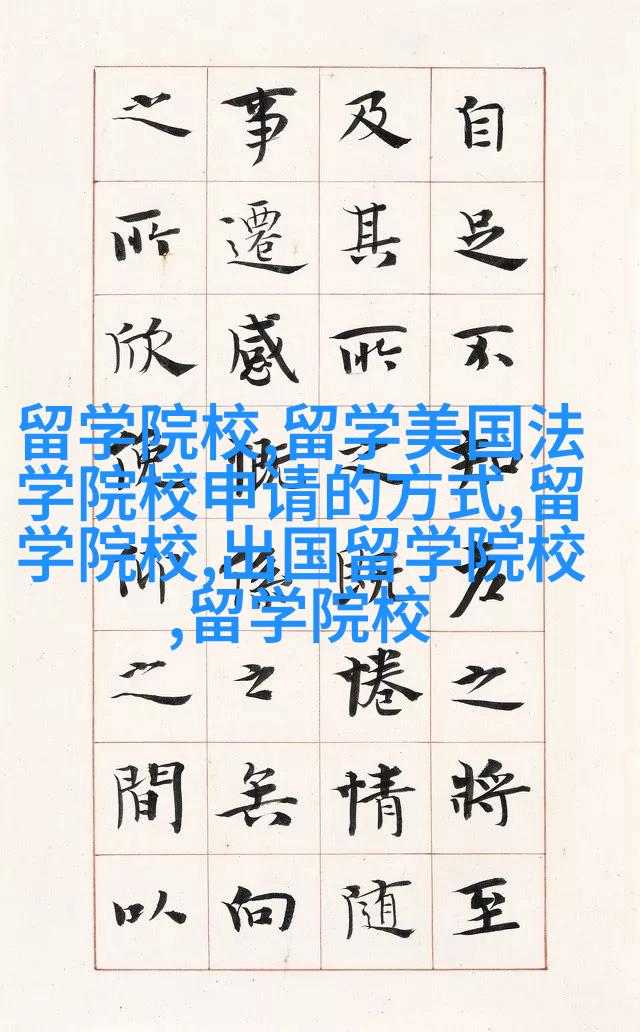 自足不知老之將至
及其所之既惓情隨
事遷感慨係之矣向
之所欣俛仰之間以
留学院校,留学美国法
学院校申请的方式,留
学院校,出国留学院校
,留学院校